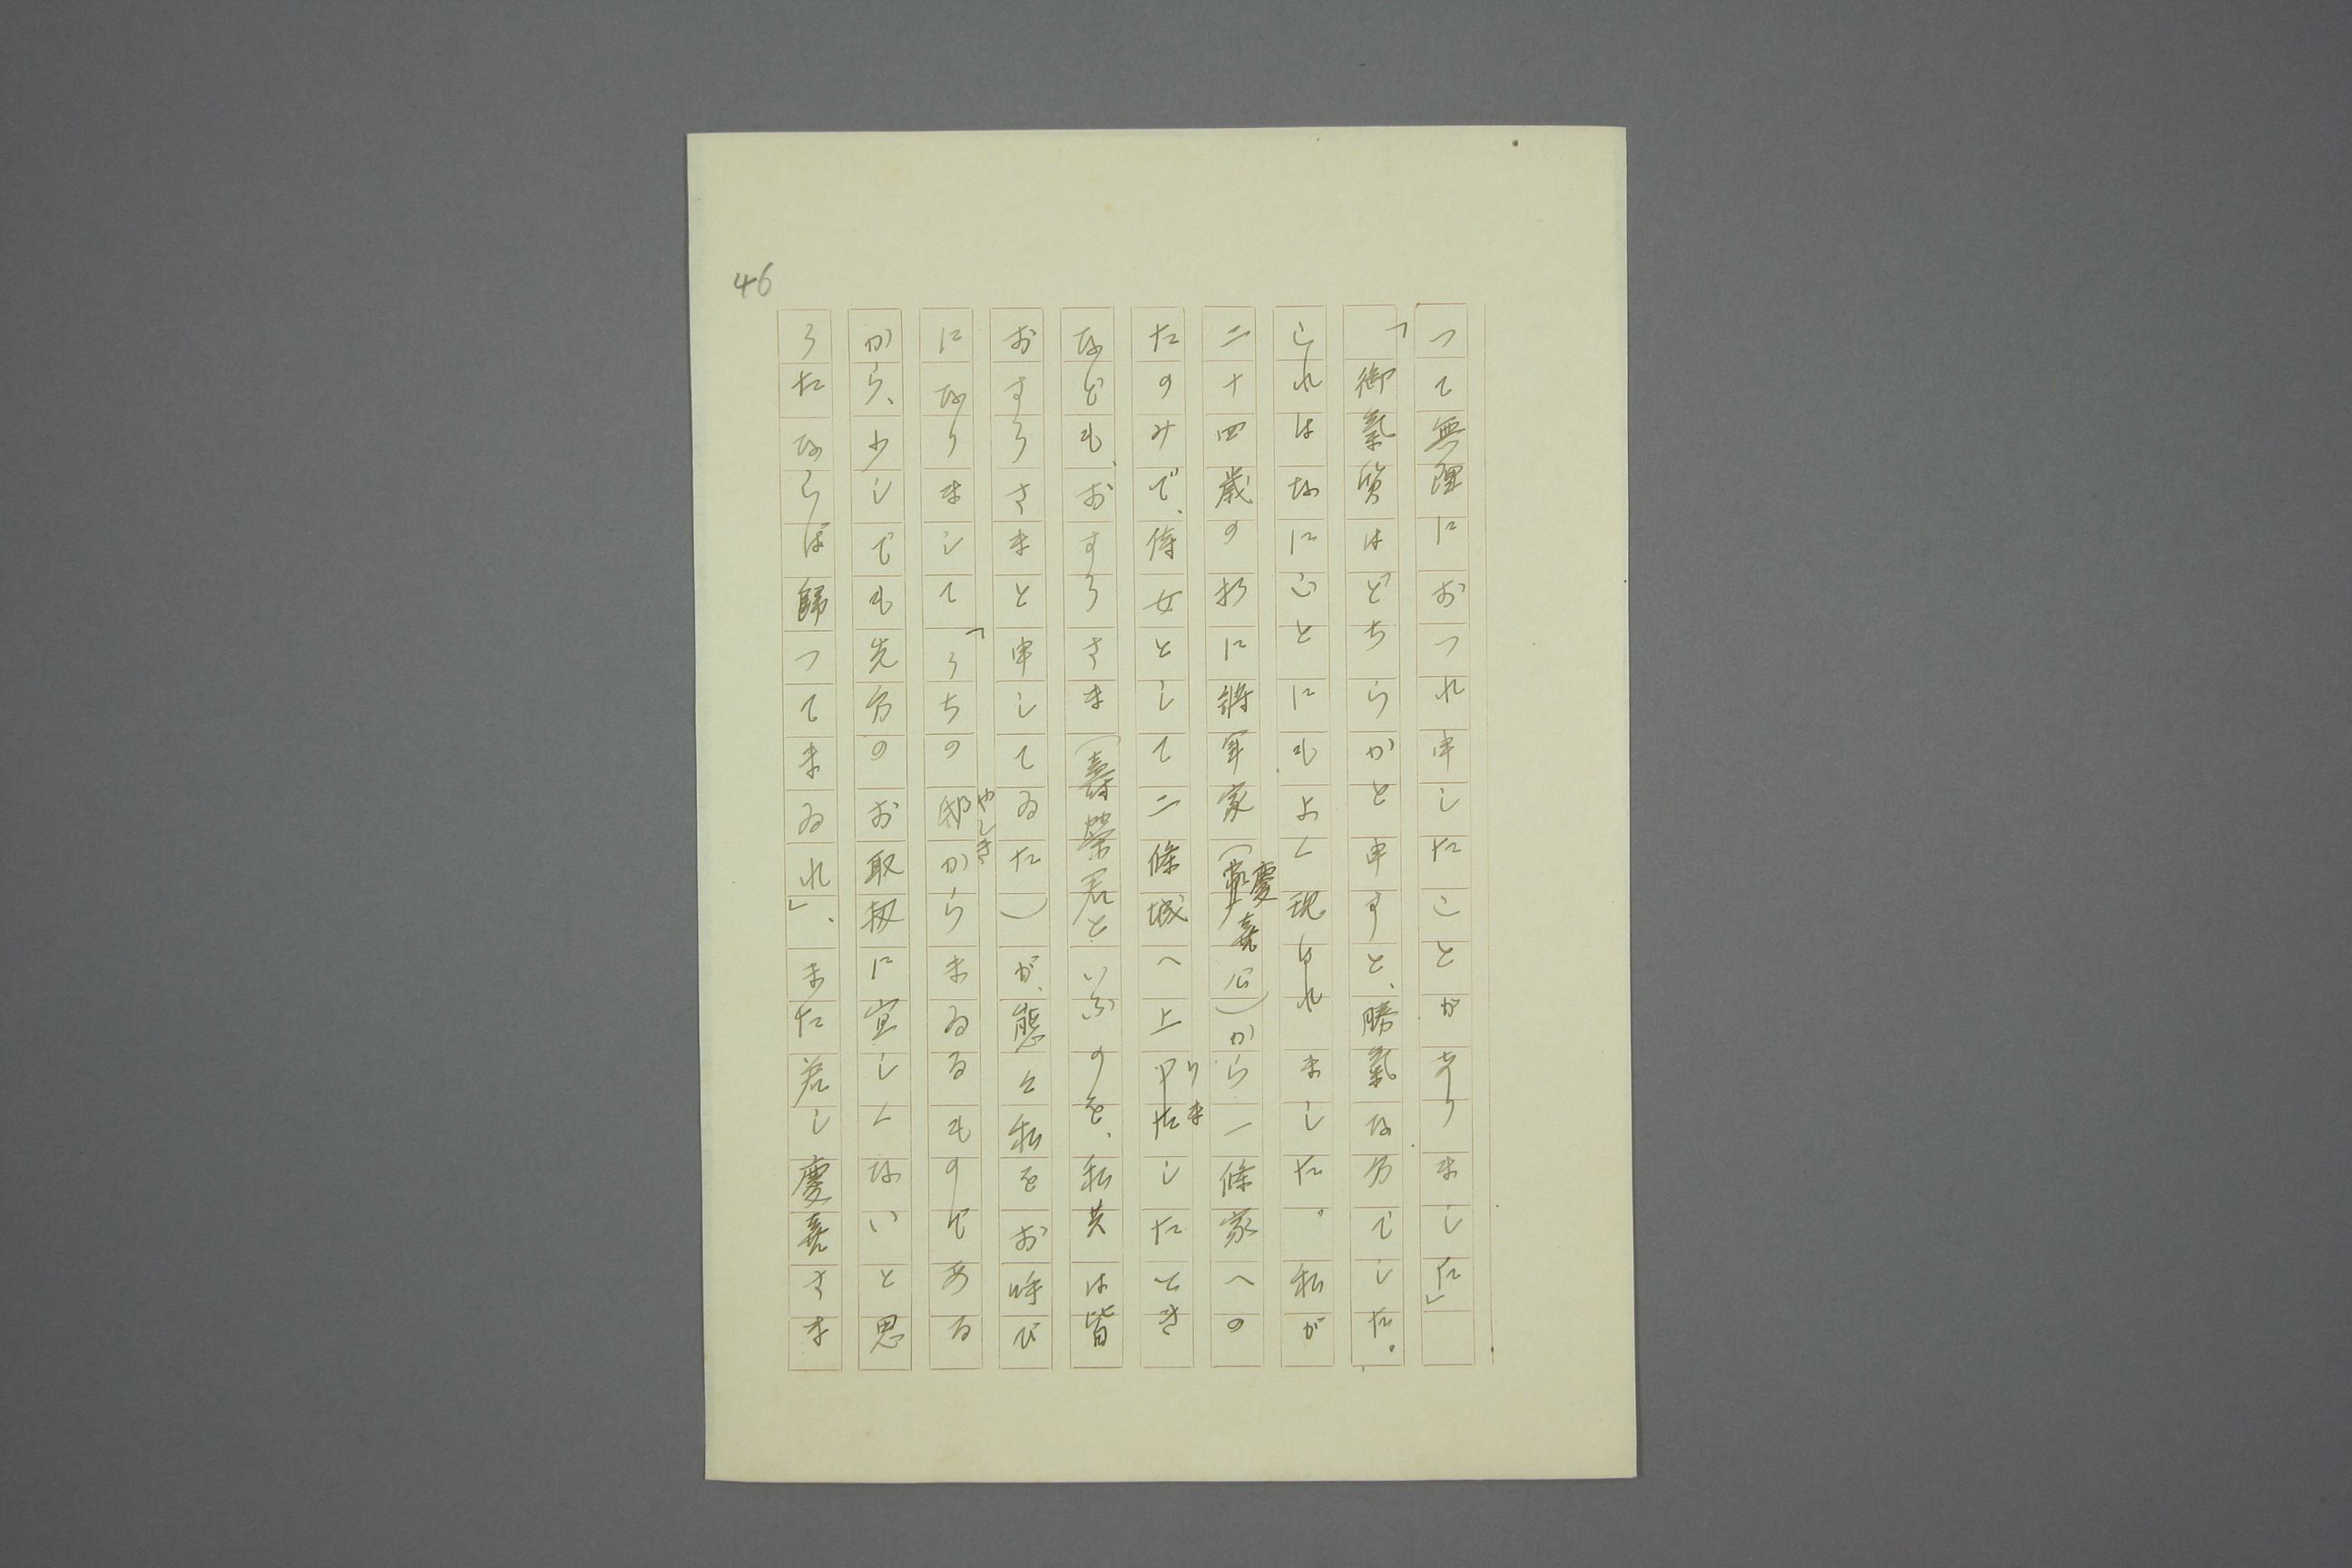 46
つて無理におつれ申したことがありました」
「御氣質はどちらかと申すと、勝氣な方でした。
これはなに心とにもよく現はれました。私が
二十四歳の折に將軍家(慶喜公)から一條家への
たのみで、侍女として二條城へ上りましたとき
なども、おすろさま(壽榮君といふのを、私共は皆
おすろさまと申してゐた)が、態々私をお呼び
になりまして「うちの邸やしきからまゐるものである
から、少しでも先方のお取扱に宜しくないと思
うたならば歸つてまゐれ」、また若し慶喜さま